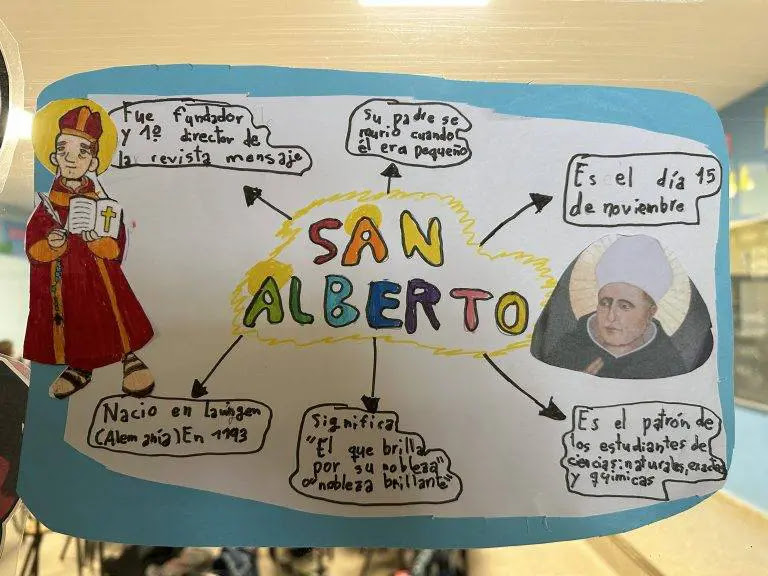 Fue fundador
y 1º director de
la revista mensaje
Su padre se
murio cuando
él era pequeño
Es el día 15
de noviembre
SAN
ALBERTO
Nacio en Lauingen
(Alemania) En 1193
Significa
"El que brilla
por su nobleza"
o "nobleza brillante"
Es el patrón de
los estudiantes de
ciencias: naturales, exactas
y químicas